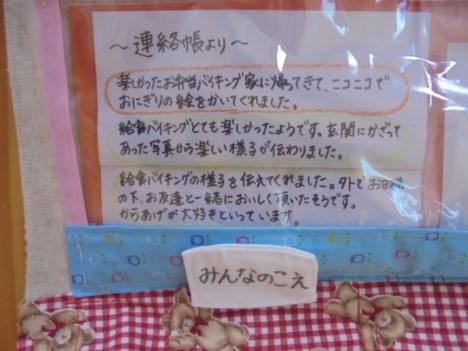 ～連絡帳より～
楽しかったお弁当バイキング家に帰ってきて、ニコニコで
おにぎりの絵をかいてくれました。
給食バイキングとても楽しかったようです。玄関にかざって
あった写真から楽しい様子が伝わりました。
給食バイキングの様子を伝えてくれました。外でお日様
の下、お友達と一緒においしく頂いたそうです。
からあげが大好きといっています。
みんなのこえ